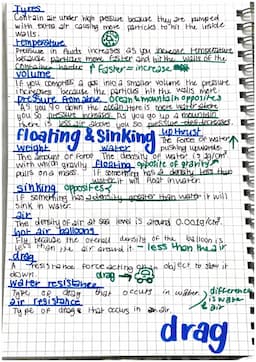 Tyres
Contain air under high pressure because they are pumped
with extra air causing more particles to hit the inside
walls.
temperature
Pressure in fluids increases as you increase temperature
because particles move faster and hit the walls of the
container harder ↑ faster = increase
volume
If you compress a gas into a smaller volume the pressure
increases because the particles hit the walls more.
pressure from above ocean & mountain opposites
As you go down the ocean there is more water above
you so pressure increases. As you go up a mountain
there is less air above you so pressure decreases
floating & sinking
upthrust
The force of water
pushing upwards.
weight
The amount of force
with which gravity
pulls on a mass.
water
The density of water is 1g/cm³
floating opposite of gravity
If something has a density less than
water it will float in water.
sinking opposites
If something has a density greater than water it will
sink in water.
air
The density of air at sea level is around 0.001g/cm³.
hot air balloons
Fly because the overall density of the balloon is
less than the air around it → less than the air
drag
A resistance force acting on an object to slow it
down. drag →
water resistance
Type of drag that occurs in water
difference
is water
& air
air resistance
Type of drag that occurs in air.
drag